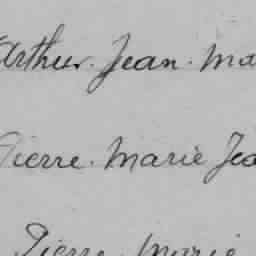 Arthur. Jean. Ma
Pierre. Marie Jea
Pierre Marie